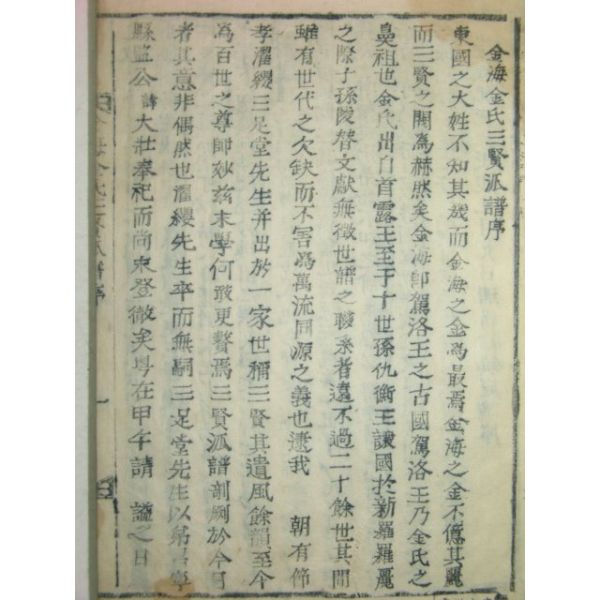 金海金氏三賢派譜序
東國之大姓不知其幾而金海之金爲最焉金海之金不億其麗
而三賢之閥爲赫然矣金海卽駕洛王之古國駕洛王乃金氏之
鼻祖也金氏出自首露王至于十世孫仇衡王讓國於新羅羅麗
之際子孫陵替文獻無徵世譜之聯系者遠不過二十餘世其間
雖有世代之欠缺而不害爲萬流同源之義也逮我 朝有節
孝濯纓三足堂先生并出於一家世稱三賢其遺風餘韻至今
爲百世之尊卽玅玆末學何敢更贅焉三賢派譜剞劂於今日
者其意非偶然也濯纓先生卒而無嗣三足堂先生以弟學
縣監公諱大壯奉祀而尙未登徹矣粤在甲午請 謚之日
金海金氏三賢派譜序 一